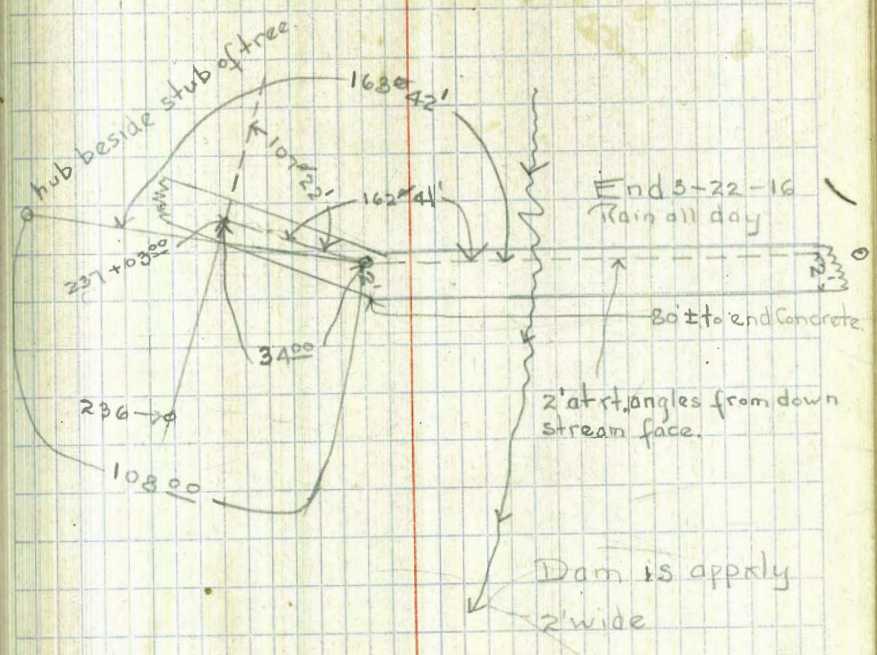 hub beside stub of tree.
163° 42'
107° 22'
162° 41'
End 3-22-16
Rain all day
237+03⁰⁰
2'
2'
80'± to end Concrete
34⁰⁰
236
2' at rt. angles from down
stream face.
108⁰⁰
Dam is apprxly
2' wide